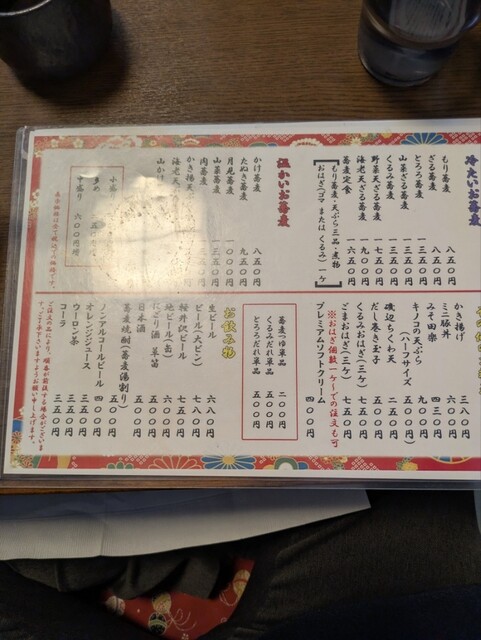 冷たいお蕎麦
もり蕎麦 八五〇円
ざる蕎麦 八五〇円
とろろ蕎麦
山菜ざる蕎麦
くるみ蕎麦
野菜天ざる蕎麦
海老天ざる蕎麦
蕎麦定食 一六五〇円
もり蕎麦・天ぷら三品・煮物
おはぎ（ゴマ または くるみ）一ケ
温かいお蕎麦
かけ蕎麦 八五〇円
たぬき蕎麦 九五〇円
月見蕎麦
山菜蕎麦
肉蕎麦
かき揚天
海老天
山かけ
小盛
中盛り 六〇〇円増
かき揚げ 三八〇円
ミニ豚丼 六〇〇円
みそ田楽 四三〇円
キノコの天ぷら 九〇〇円
（ハーフサイズ 五〇〇円）
磯辺ちくわ天 二五〇円
だし巻き玉子
くるみおはぎ（三ケ） 七五〇円
ごまおはぎ（三ケ） 七五〇円
※おはぎ個数一ケ〜での注文も可
プレミアムソフトクリーム 四〇〇円
蕎麦つゆ単品 二〇〇円
くるみだれ単品 五〇〇円
とろろだれ単品 五〇〇円
お飲み物
生ビール 六八〇円
ビール（大ビン） 七八〇円
軽井沢ビール
地ビール（缶） 六〇〇円
にごり酒
日本酒
蕎麦焼酎（蕎麦湯割り） 五〇〇円
ノンアルコールビール 四〇〇円
オレンジジュース 三五〇円
ウーロン茶 三五〇円
コーラ 三五〇円
ご注文の品により、順番が前後する場合がございます。
ご了承下さいますようお願い申し上げます。